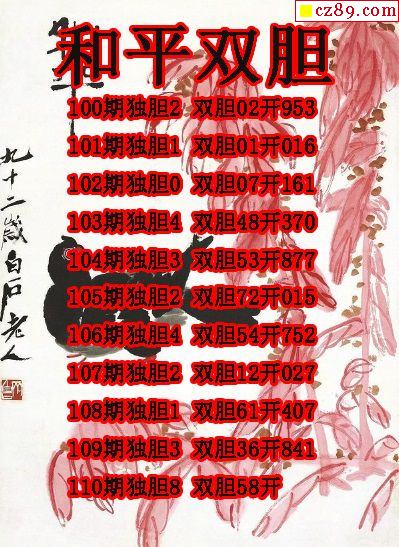 cz89.com
和平双胆
100期独胆2 双胆02开953
101期独胆1 双胆01开016
102期独胆0 双胆07开161
103期独胆4 双胆48开370
104期独胆3 双胆53开877
105期独胆2 双胆72开015
106期独胆4 双胆54开752
107期独胆2 双胆12开027
108期独胆1 双胆61开407
109期独胆3 双胆36开841
110期独胆8 双胆58开
九十二歲白石老人